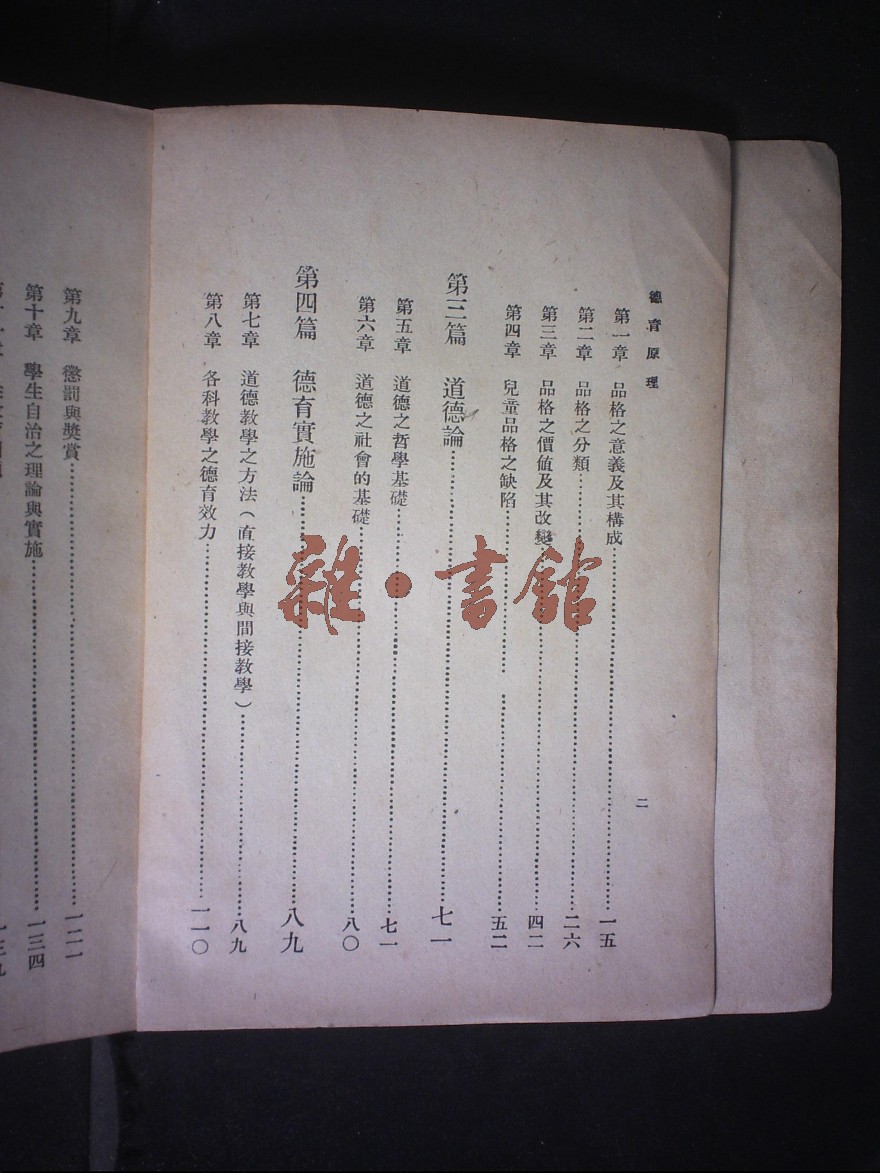 德育原理
二
第一章　品格之意義及其構成……一五
第二章　品格之分類……二六
第三章　品格之價值及其改變……四二
第四章　兒童品格之缺陷……五二
第三篇　道德論……七一
第五章　道德之哲學基礎……七一
第六章　道德之社會的基礎……八〇
第四篇　德育實施論……八九
第七章　道德教學之方法（直接教學與間接教學）……八九
第八章　各科教學之德育效力……一一〇
第九章　懲罰與獎賞……一二一
第十章　學生自治之理論與實施……一三四
雜·書館